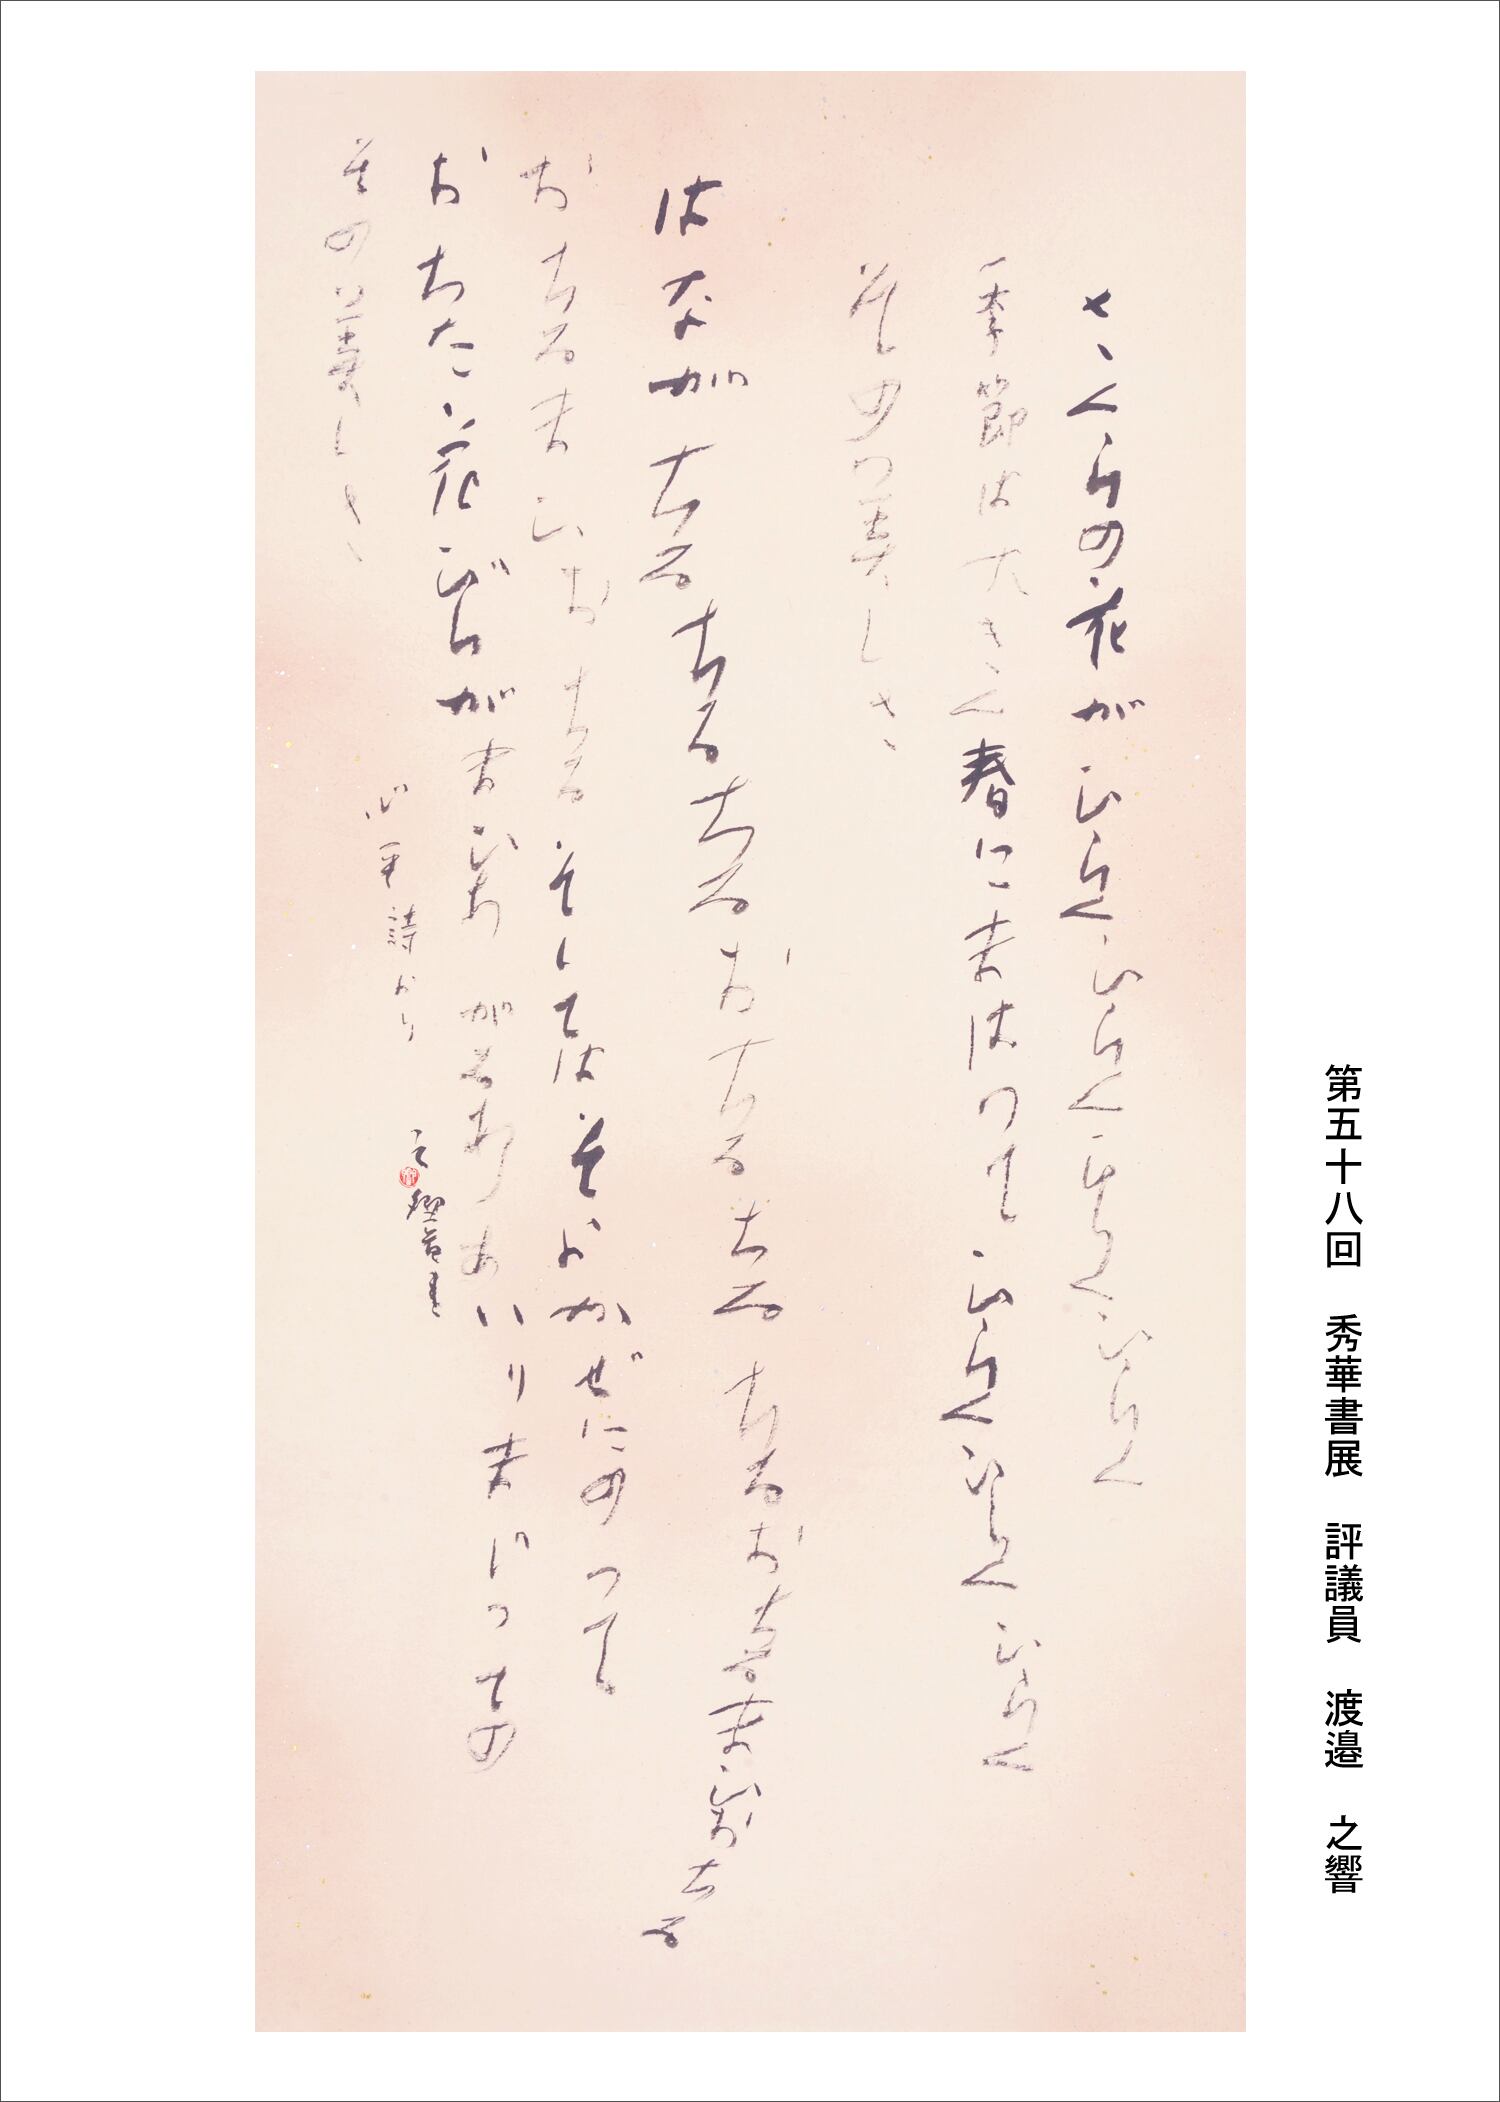 第五十八回 秀華書展 評議員 渡邉 之響
さくらの花がひらくひらくひらくひらく
季節は大きく春にまはつてひらくひらくひらく
その美しさ
はながちるちるちるおちるちるちるおちるまひおちる
おちるまひおちるそしてはそよかぜにのつて
おちた花びらがまひあがる いりまじつての
その美しさ
心平詩より 之響書